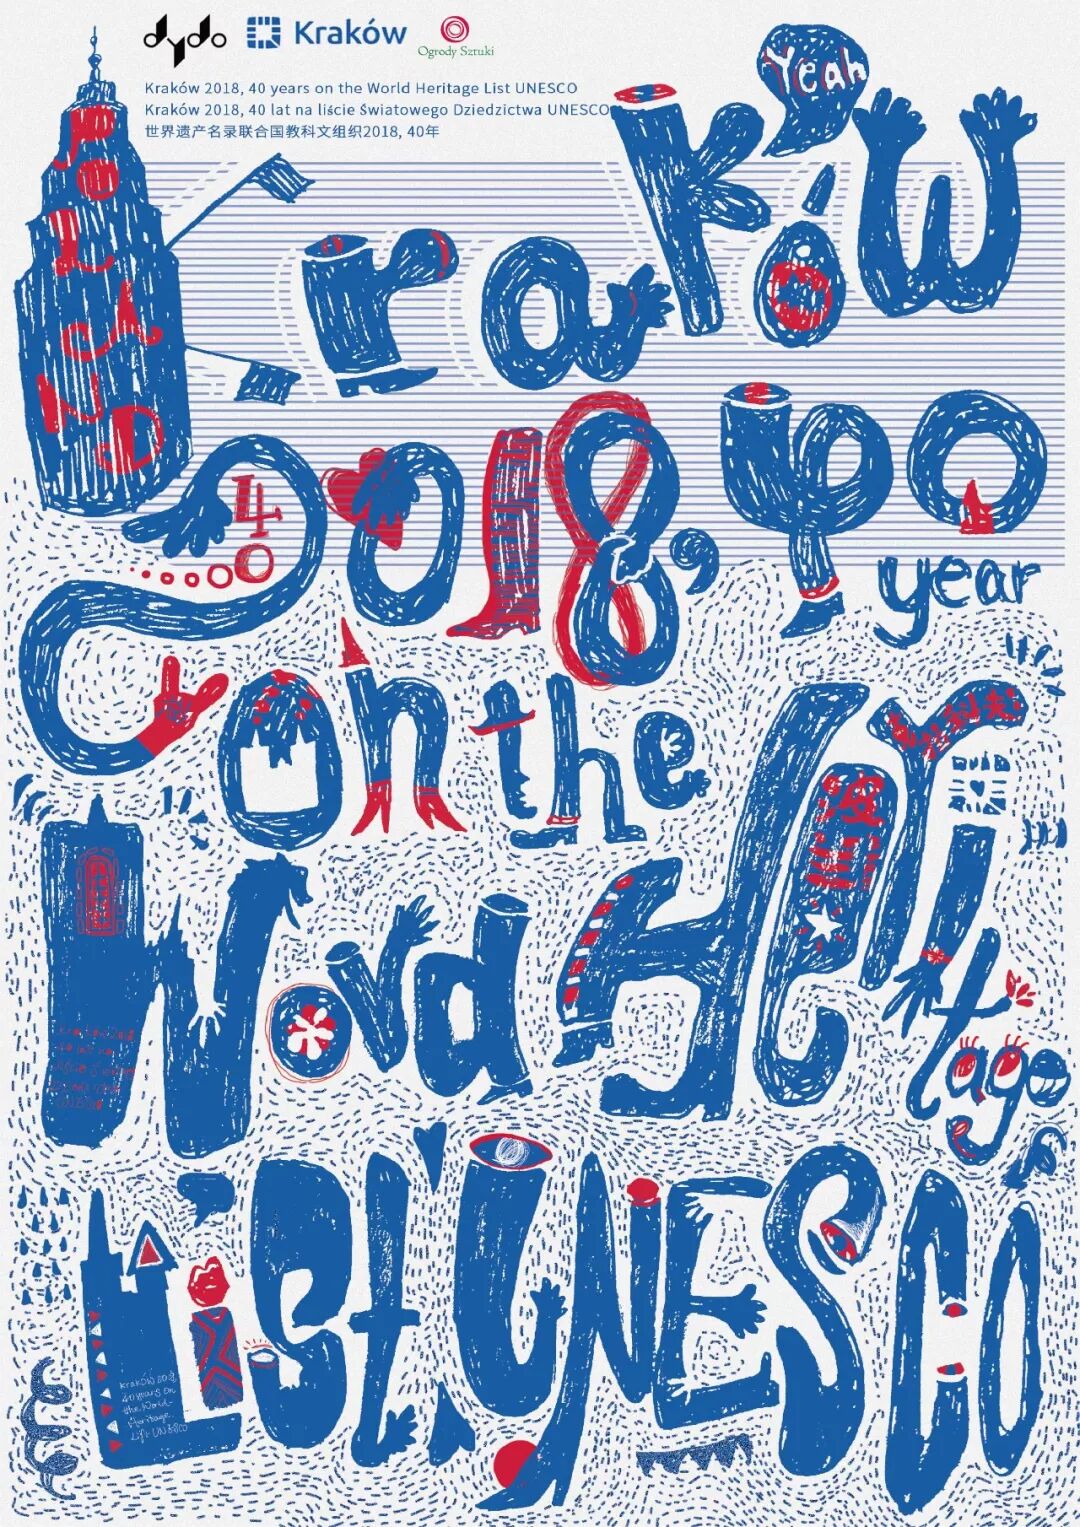 dydo
Kraków
Ogrody Sztuki
Kraków 2018, 40 years on the World Heritage List UNESCO
Kraków 2018, 40 lat na liście Światowego Dziedzictwa UNESCO
世界遗产名录联合国教科文组织2018, 40年
Yeah
PoLaND
krakKów
2018, 40
40
year
on the
Word Heritage
List UNESCO
Kraków 2018
40 years on
the World
Heritage
List UNESCO